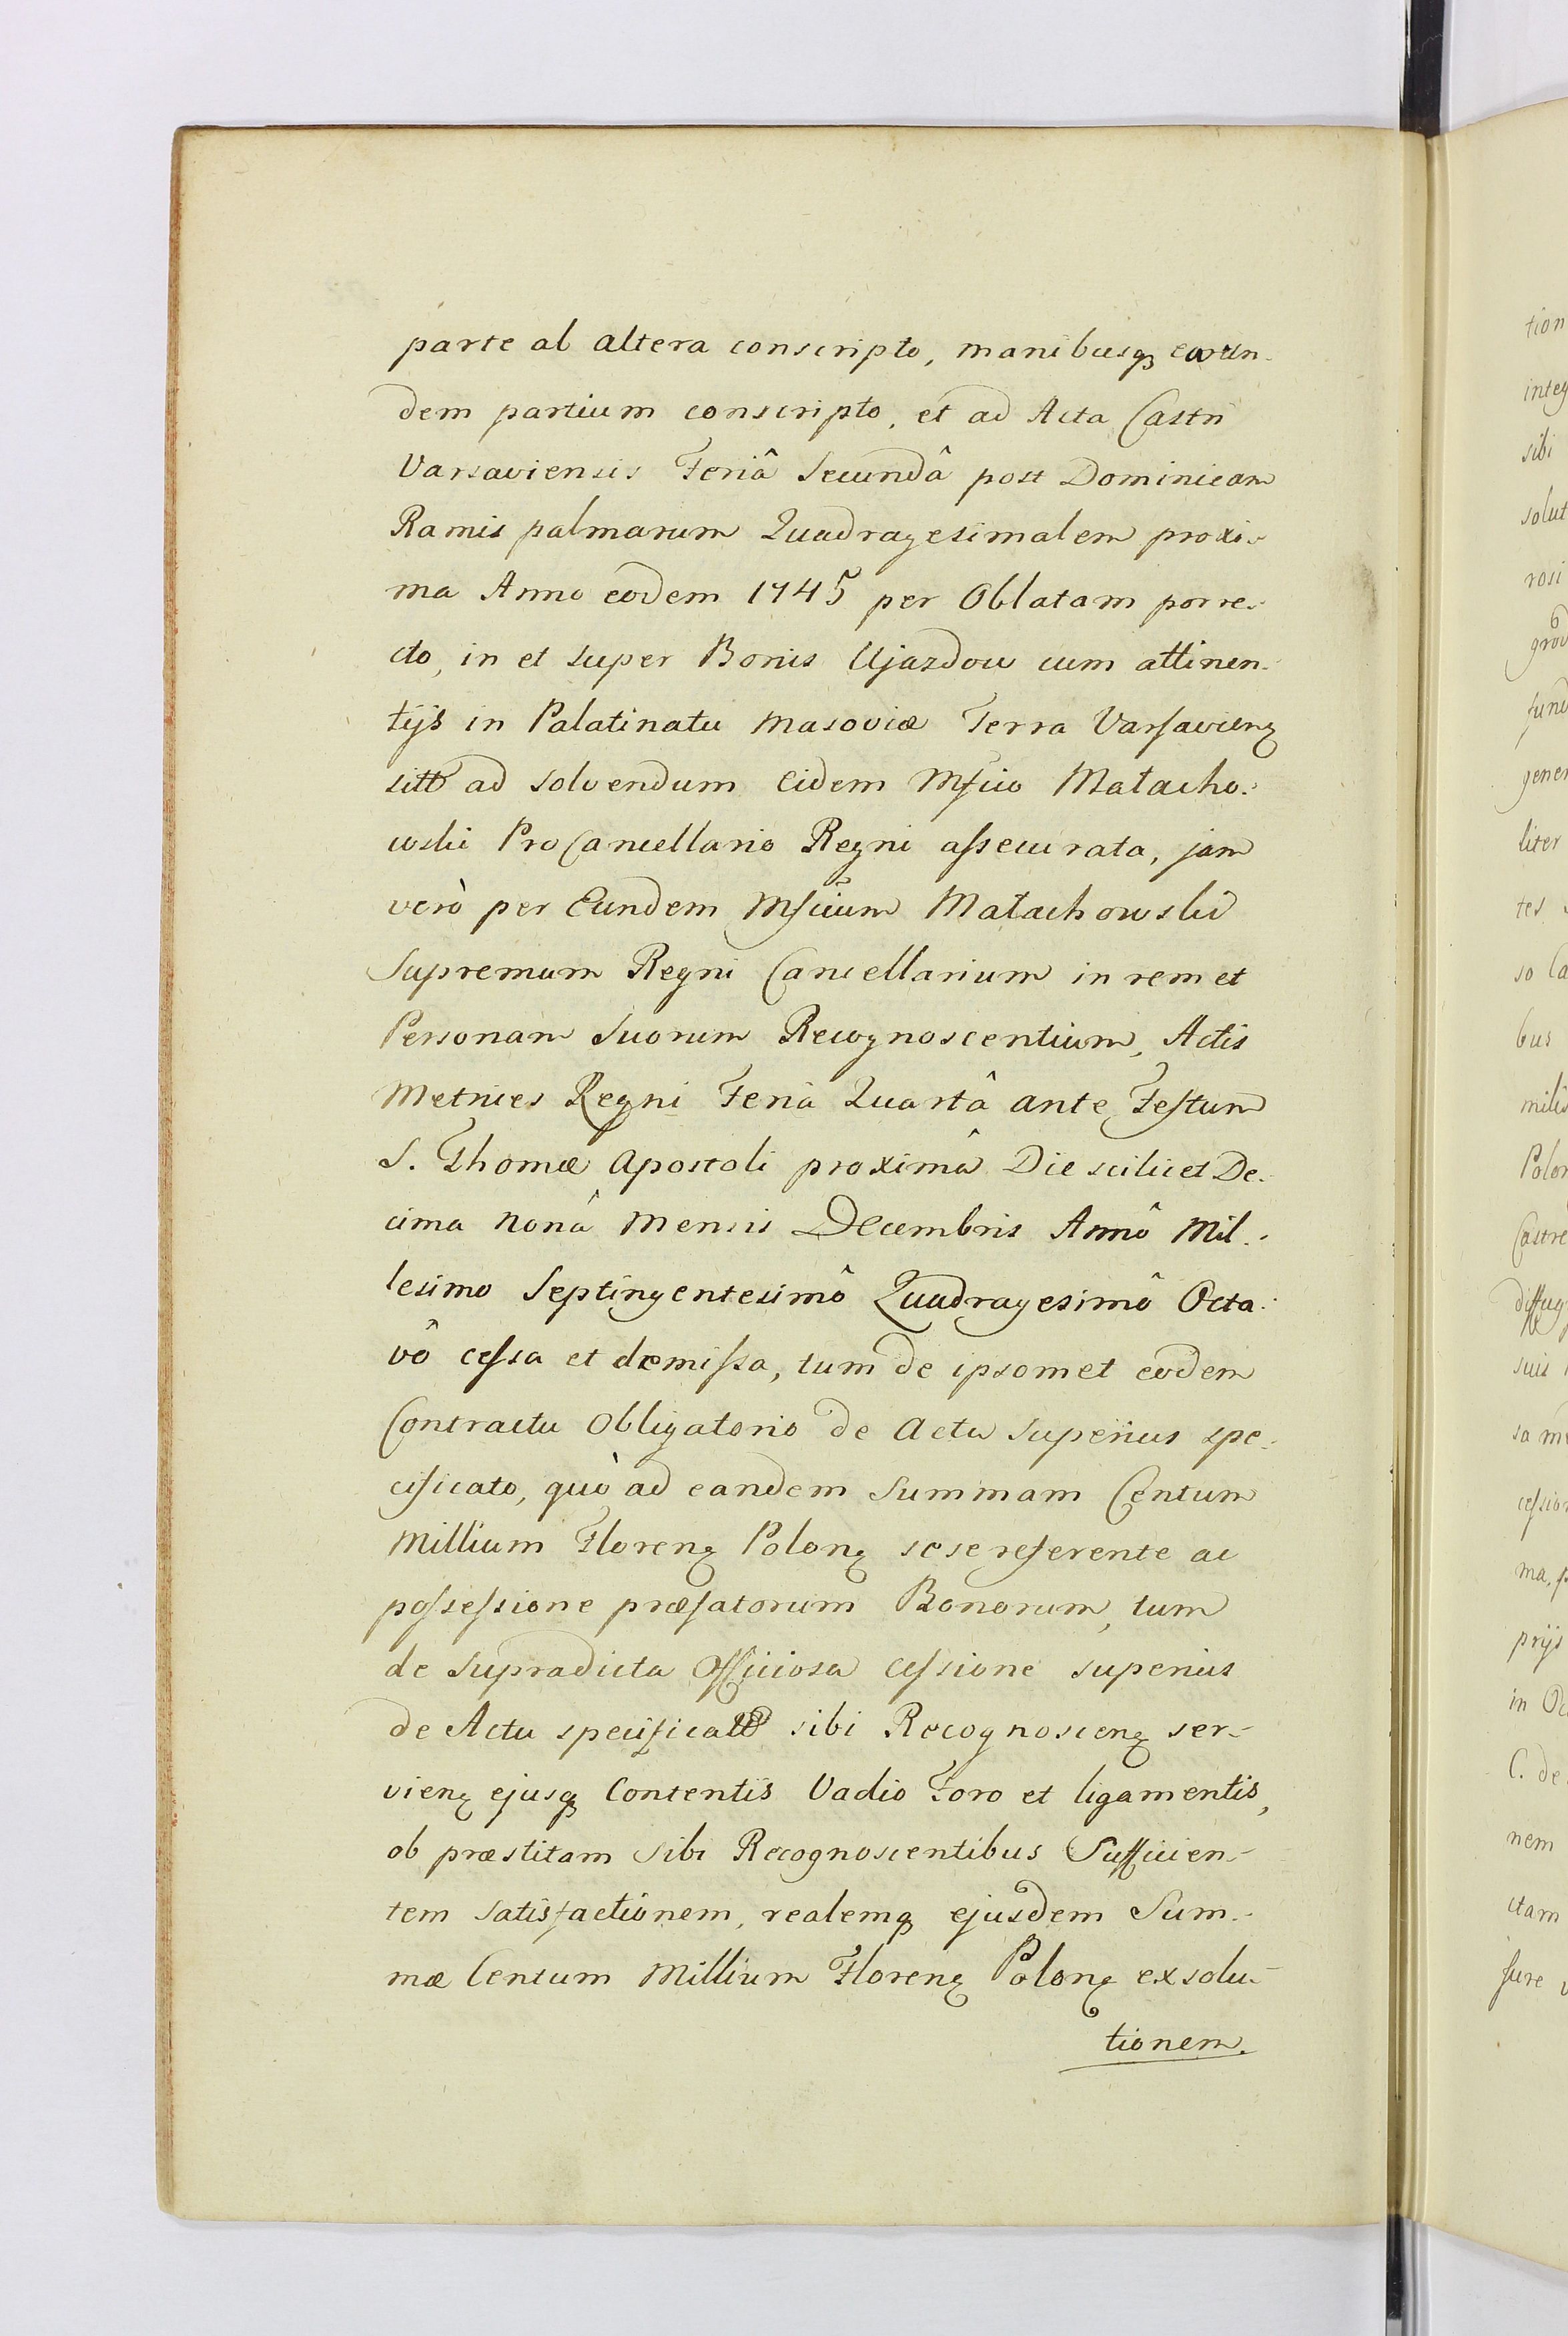 parte al altera conscripto, manibusq eorun-
dem partium conscripto, et ad Acta Castri
Varsaviensis Feriâ Secundâ post Dominicam
Ramis palmarum Quadragesimalem proxi-
ma Anno eodem 1745 per Oblatam porre-
cto, in et super Bonis Ujazdow cum attinen-
tijs in Palatinatu Masoviæ Terra Varsavienq
sitto ad solvendum eidem Mfico Małacho-
wski ProCancellario Regni assecurata, jam
verò per Eundem Mficum Małachowski
Supremum Regni Cancellarium in rem et
Personam Suorum Recognoscentium, Actis
Metrices Regni Feriâ Quartâ ante Festum
S. Thomæ Apostoli proximâ Die scilicet De-
cima nonâ Mensis Decembris Annô Mil-
lesimo Septingentesimô Quadragesimô Octa-
vô cessa et demissa, tum de ipsomet eodem
Contractu Obligatorio de Actu Superius spe-
cificato, quò ad eandem Summam Centum
Millium Florenq Polonq sese referente ac
possessione præfatorum Bonorum, tum
de Supradicta Officiosa cessione superius
de Actu specificato sibi Recognoscenq ser-
vienq ejusq Contentis Vadio Foro et ligamentis,
ob præstitam sibi Recognoscentibus Sufficien-
tem satisfactionem, realemq ejusdem Sum-
mæ Centum Millium Florenq Polonq exsolu-
tionem.
tion
integ
sibi
solut
rosi
6
grov
fund
gener
liter
tes
so Ca
bus
milis
Polon
Castre
diffug
suis
sa me
cession
ma, p
prijs
in Oc
C. de
nem
ctam
sure